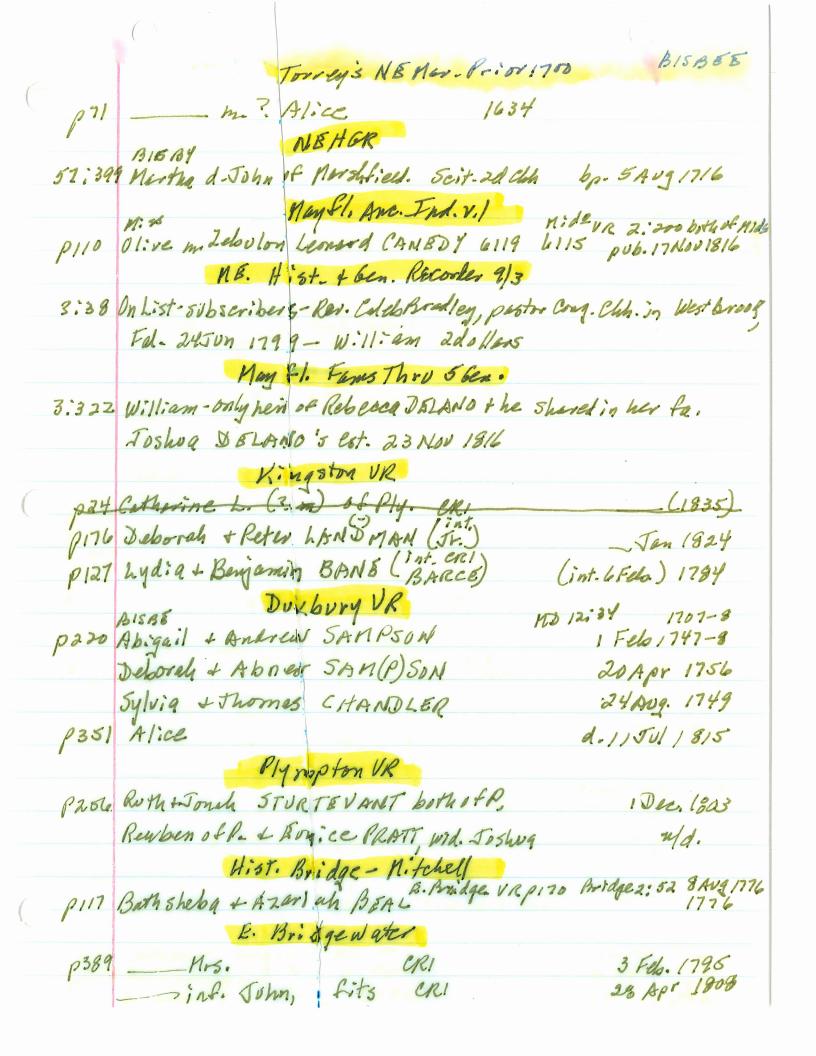 Torrey's NE Mar. Prior 1700 BISBEE
p71 ____ m. ? Alice 1634
NEHGR
BISBY
57:399 Martha d. John of Marshfield. Scit. 2d Chh bp. 5 Aug 1716
Mayfl. Anc. Ind. v.1
Mide VR 2:200 both of Mide
p110 Olive m. Zebulon Leonard CANEDY 6119 6115 pub. 17 Nov 1816
NE. Hist. & Gen. Recorder 9/3
3:38 On List-subscribers- Rev. Caleb Bradley, pastor Cong. Chh. in Westbrook,
Fal. 24 Jun 1799 - William 2 dollars
Mayfl. Fams Thru 5 Gen.
3:322 William - only heir of Rebecca DELANO & he shared in her fa.
Joshua DELANO's Est. 23 Nov 1816
Kingston VR
p24 Catherine L. (? m) of Ply. CR1 ____ (1835)
p176 Deborah & Peter LANDMAN (int. Jr.) __ Jan 1824
p127 Lydia & Benjamin BANE (int. CR1 BARCE) (int. 6 Feb.) 1784
Duxbury VR
BISBE MD 12:34 1707-8
p220 Abigail & Andrew SAMPSON 1 Feb 1747-8
Deborah & Abner SAM(P)SON 20 Apr 1756
Sylvia & Thomas CHANDLER 24 Aug. 1749
p351 Alice d. 11 Jul 1815
Plympton VR
p256 Ruth & Jonah STURTEVANT both of P. 1 Dec. 1803
Rewben of P. & Eunice PRATT, wid. Joshua n/d.
Hist. Bridge - Mitchell
E. Bridge VR p170 Bridge 2:52 8 Aug 1776
p117 Bathsheba & Azariah BEAL 1776
E. Bridgewater
p389 ____ Mrs. CR1 3 Feb. 1795
____ inf. John, fits CR1 28 Apr 1808